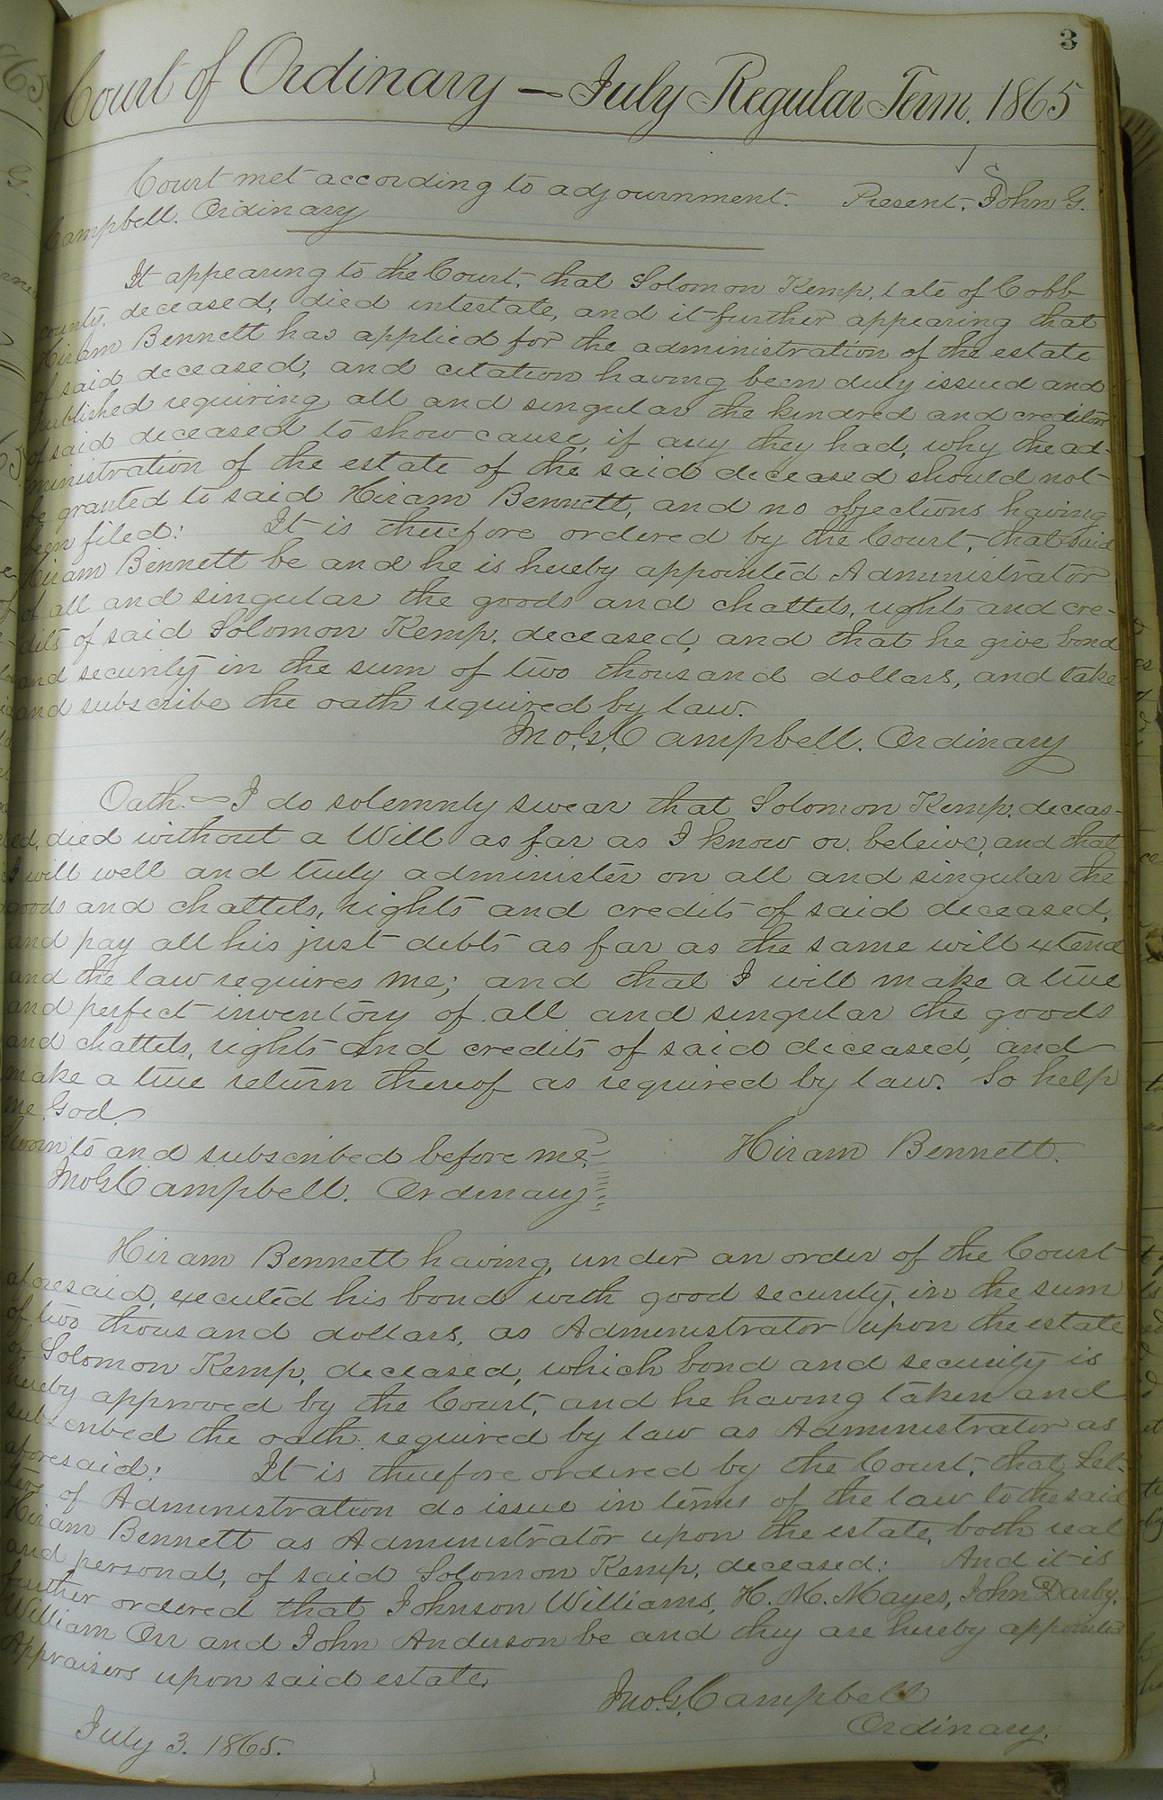 3
Court of Ordinary — July Regular Term, 1865
Court met according to adjournment. Present, John G.
Campbell. Ordinary
It appearing to the Court, that Solomon Kemp, late of Cobb
county, deceased, died intestate, and it further appearing that
Hiram Bennett has applied for the administration of the estate
of said deceased, and citation having been duly issued and
published requiring all and singular the kindred and creditors
of said deceased to show cause, if any they had, why the ad-
ministration of the estate of the said deceased should not
be granted to said Hiram Bennett, and no objections having
been filed: It is therefore ordered by the Court, that said
Hiram Bennett be and he is hereby appointed Administrator
of all and singular the goods and chattels, rights and cre-
dits of said Solomon Kemp, deceased, and that he give bond
and security in the sum of two thousand dollars, and take
and subscribe the oath required by law.
Jno. G. Campbell. Ordinary
Oath. — I do solemnly swear that Solomon Kemp, deceas-
ed, died without a Will as far as I know or beleive, and that
I will well and truly administer on all and singular the
goods and chattels, rights and credits of said deceased,
and pay all his just debts as far as the same will extend
and the law requires me; and that I will make a true
and perfect inventory of all and singular the goods
and chattels, rights and credits of said deceased, and
make a true return thereof as required by law. So help
me God.
Sworn to and subscribed before me, Hiram Bennett.
Jno G Campbell. Ordinary
Hiram Bennett having, under an order of the Court
aforesaid, executed his bond with good security, in the sum
of two thousand dollars, as Administrator upon the estate
of Solomon Kemp, deceased, which bond and security is
hereby approved by the Court, and he having taken and
subscribed the oath required by law as Administrator as
aforesaid: It is therefore ordered by the Court, that Let-
ters of Administration do issue in terms of the law to the said
Hiram Bennett as Administrator upon the estate, both real
and personal, of said Solomon Kemp, deceased: And it is
further ordered that Johnson Williams, H. M. Mayes, John Darby,
William Orr and John Anderson be and they are hereby appointed
Appraisers upon said estate.
Jno. G. Campbell
Ordinary.
July 3. 1865.